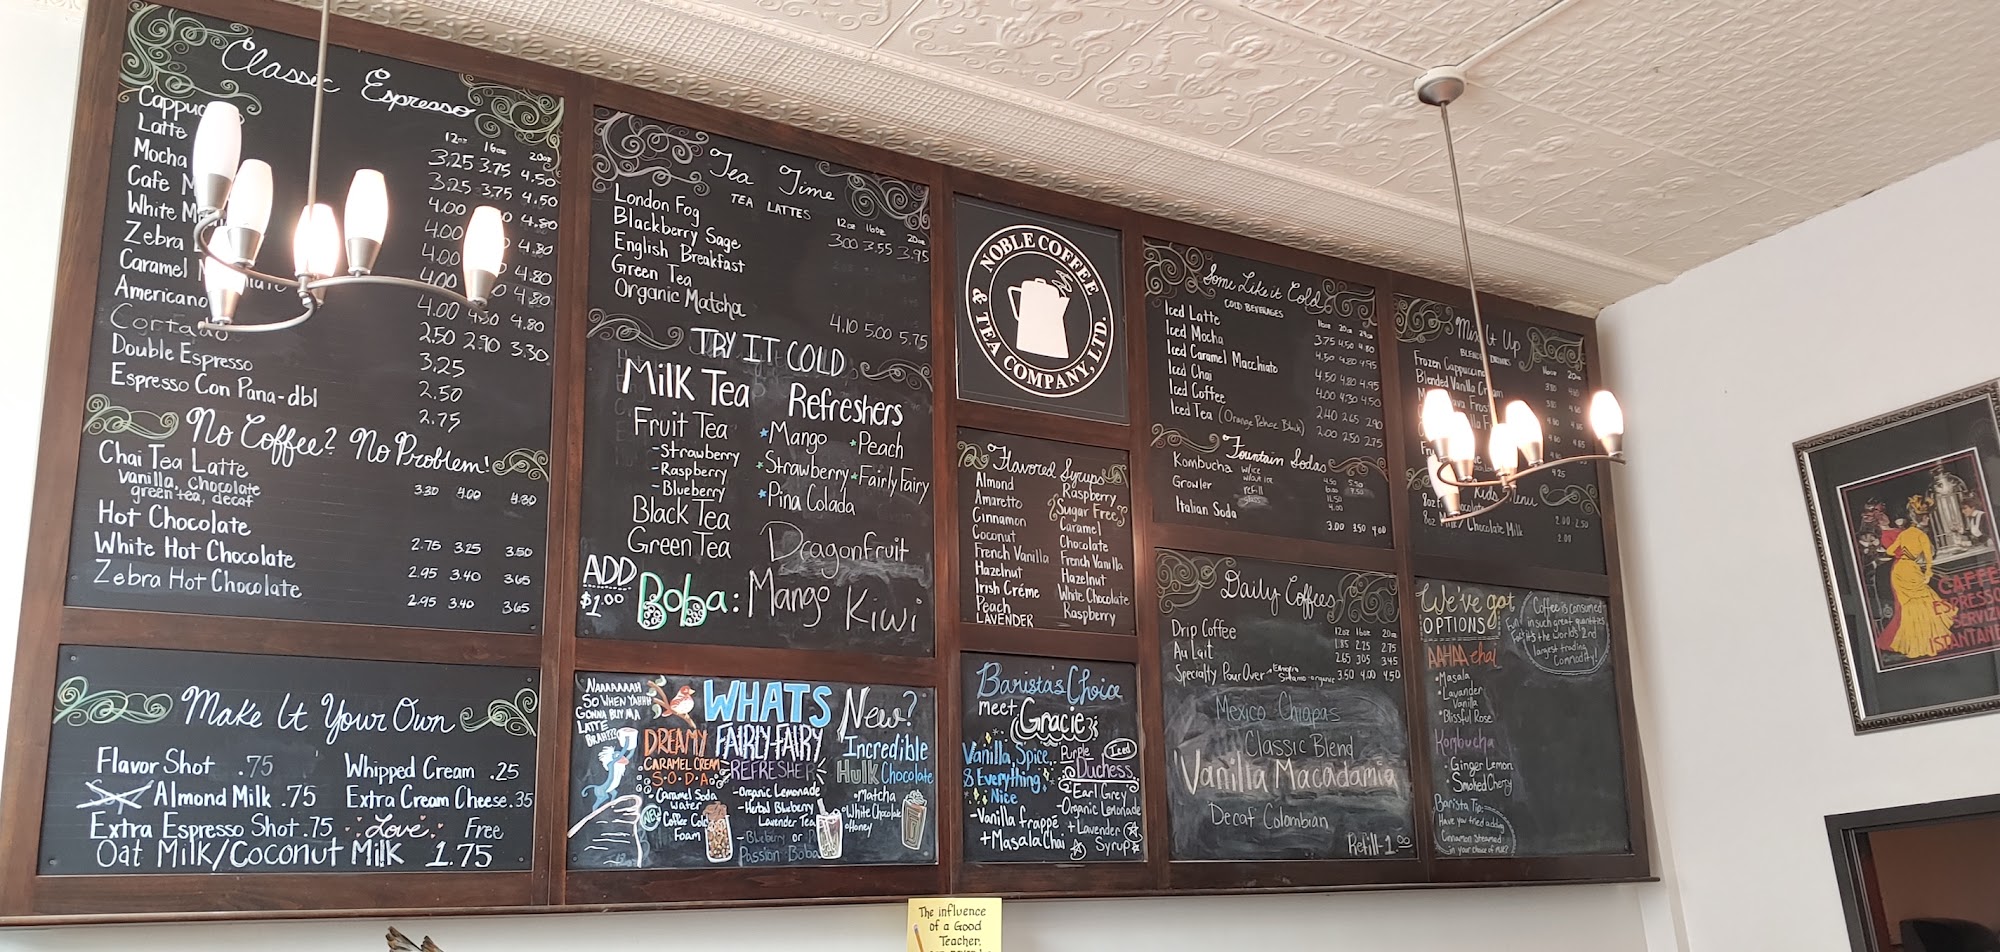 Classic Espresso
12oz 16oz 20oz
3.25 3.75 4.50
Latte 3.25 3.75 4.50
Mocha 4.00 4.80
Cafe 4.00 4.80
White 4.00 4.80
Zebra 4.00 4.80
Caramel 4.00 4.80
Americano 2.50 2.90 3.30
Cortado 3.25
Double Espresso 2.50
Espresso Con Pana-dbl 2.75
No Coffee? No Problem!
Chai Tea Latte 3.30 4.00 4.30
vanilla, chocolate
green tea, decaf
Hot Chocolate 2.75 3.25 3.50
White Hot Chocolate 2.95 3.40 3.65
Zebra Hot Chocolate 2.95 3.40 3.65
Make It Your Own
Flavor Shot .75
Almond Milk .75
Extra Espresso Shot .75
Whipped Cream .25
Extra Cream Cheese .35
Love Free
Oat Milk/Coconut Milk 1.75
Tea Time
TEA LATTES
12oz 16oz 20oz
London Fog 3.00 3.55 3.95
Blackberry Sage
English Breakfast
Green Tea
Organic Matcha 4.10 5.00 5.75
TRY IT COLD
Milk Tea
Fruit Tea
-Strawberry
-Raspberry
-Blueberry
Black Tea
Green Tea
Refreshers
Mango Peach
Strawberry Fairly Fairy
Pina Colada
Dragonfruit
ADD
$1.00
Boba: Mango Kiwi
NAAAAAAH
SO WHEN YAHHH
GONNA BUY MA
LATTE
BRAH???
WHATS New?
DREAMY
CARAMEL CREAM
S.O.D.A
Caramel Soda
Water
Coffee Cold
Foam
FAIRLY-FAIRY
REFRESHER
-Organic Lemonade
-Herbal Blueberry
Lavender Tea
-Blueberry or
Passion Boba
Incredible
Hulk Chocolate
Matcha
White Chocolate
Honey
NOBLE COFFEE
& TEA COMPANY, LTD.
Flavored Syrups
Almond
Amaretto
Cinnamon
Coconut
French Vanilla
Hazelnut
Irish Créme
Peach
LAVENDER
Raspberry
Sugar Free
Caramel
Chocolate
French Vanilla
Hazelnut
White Chocolate
Raspberry
Barista's Choice
meet
Gracie
Vanilla, Spice,
& Everything
Nice
-Vanilla frappé
+Masala Chai
Iced
Purple
Duchess
"Earl Grey"
-Organic Lemonade
+Lavender
Syrup
Some Like it Cold
COLD BEVERAGES
16oz 20oz 24oz
Iced Latte 3.75 4.50 4.80
Iced Mocha 4.50 4.80 4.95
Iced Caramel Macchiato 4.50 4.80 4.95
Iced Chai 4.00 4.30 4.50
Iced Coffee 2.40 2.65 2.90
Iced Tea (Orange Pekoe Black) 2.00 2.50 2.75
Fountain Sodas
Kombucha w/ice
w/out ice
Growler refill
Italian Soda 3.00 3.50 4.00
Daily Coffees
12oz 16oz 20oz
Drip Coffee 1.85 2.25 2.75
Au Lait 2.65 3.05 3.45
Specialty Pour Over 3.50 4.00 4.50
Mexico Chiapas
Classic Blend
Vanilla Macadamia
Decaf Colombian
Refill-1.00
Mix It Up
Frozen Cappuccino
Blended Vanilla
Kids Menu
Chocolate Milk
We've got
OPTIONS
AAHAA chai
Masala
Lavender
Vanilla
Blissful Rose
Kombucha
Ginger Lemon
Smoked Cherry
Barista Tip:
Have you tried adding
Cinnamon steamed
in your choice of milk?
Coffee is consumed
in such great quantities
it's the world's 2nd
largest trading
Commodity!
The influence
of a Good
Teacher,
CAFFE
ESPRESSO
SERVIZIO
ISTANTANEO